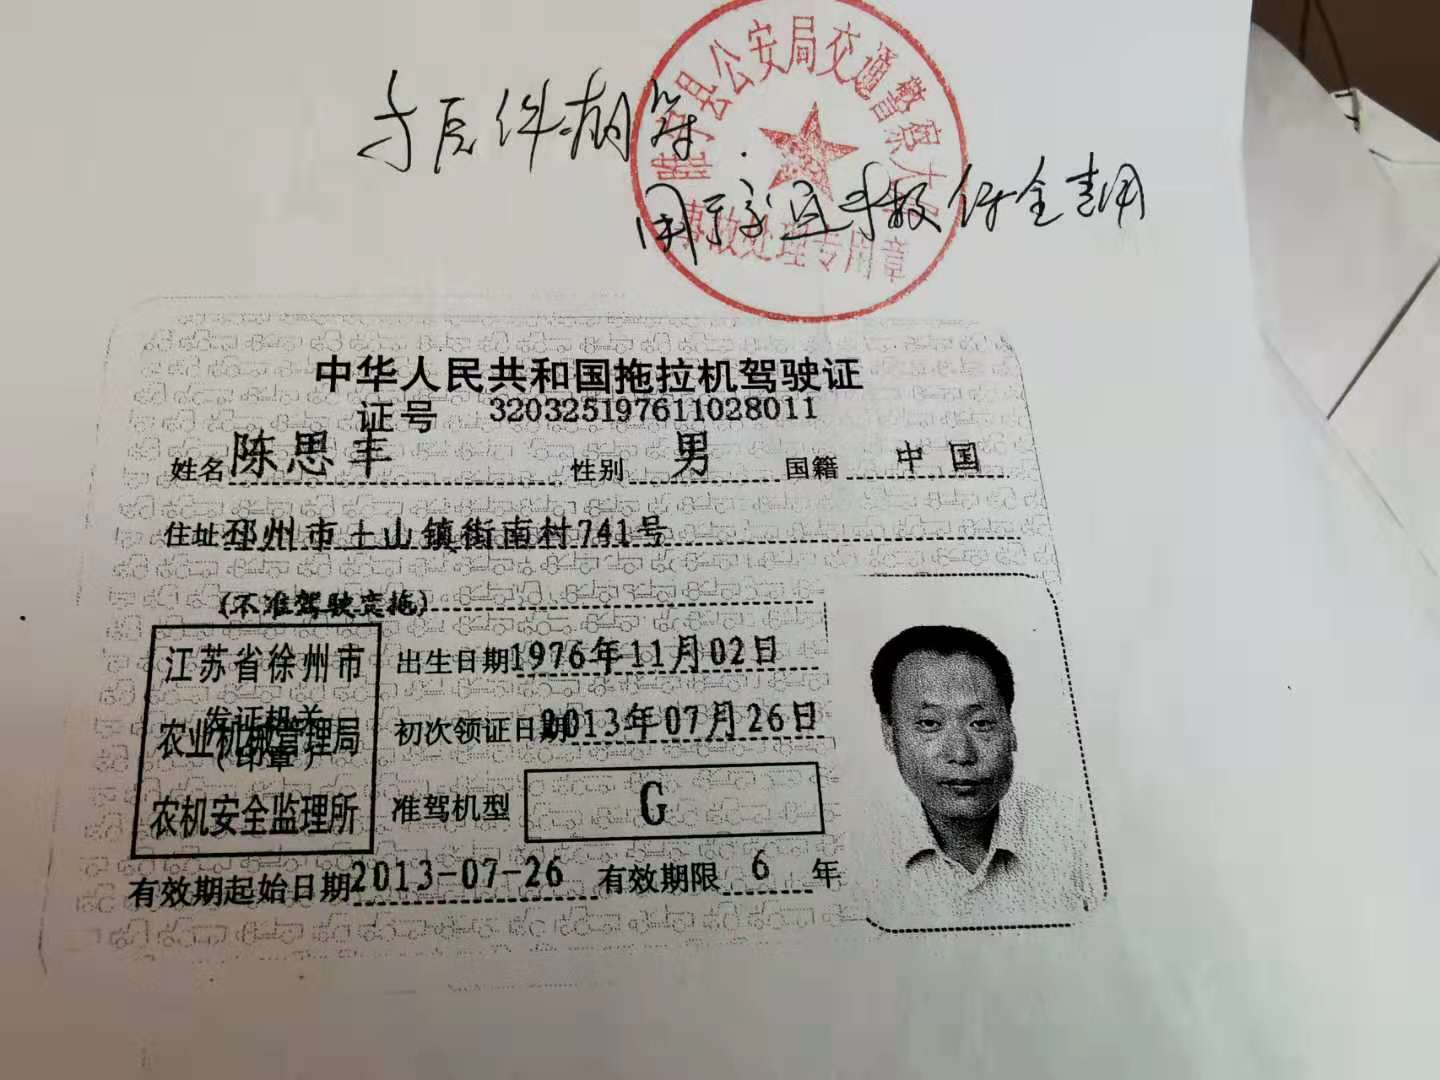 睢宁县公安局交通警察大队
事故处理专用章
与原件相符
中华人民共和国拖拉机驾驶证
证号 320325197611028011
姓名 陈思丰 性别 男 国籍 中国
住址 邳州市土山镇街南村741号
(不准驾驶变拖)
江苏省徐州市
农业机械管理局
农机安全监理所
发证机关
(印章)
出生日期 1976年11月02日
初次领证日期 2013年07月26日
准驾机型 G
有效期起始日期 2013-07-26 有效期限 6 年